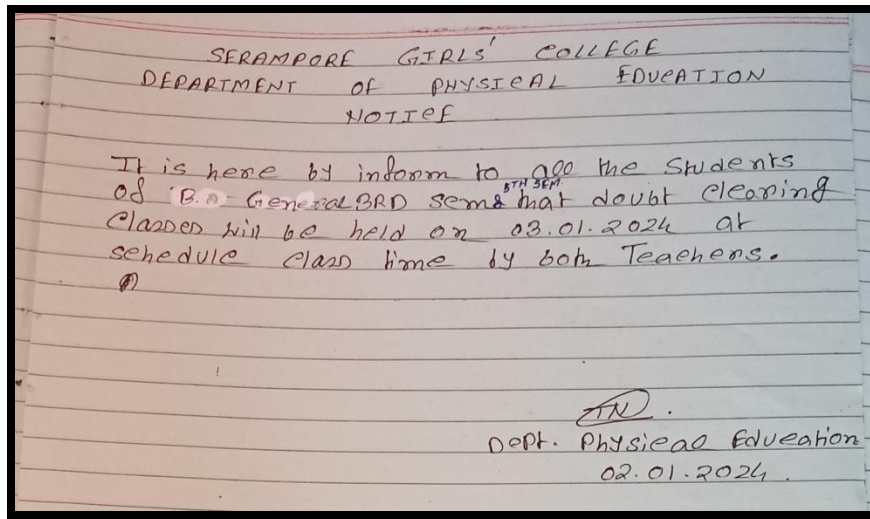 SERAMPORE GIRLS' COLLEGE
DEPARTMENT OF PHYSICAL EDUCATION
NOTICE
It is here by inform to all the Students
of B.A General 3RD sem & 5TH SEM. that doubt clearing
classes will be held on 03.01.2024 at
schedule class time by both Teachers.
Dept. Physical Education
02.01.2024.